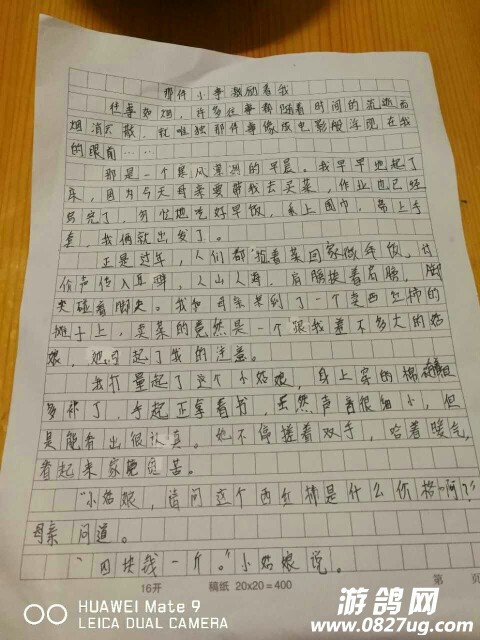 那件小事激励着我
往事如烟，许多往事都随着时间的流逝而
烟消云散，就唯独那件事像放电影般浮现在我
的眼前……
那是一个寒风凛冽的早晨。我早早地起了
床，因为今天母亲要带我去买菜，作业也已经
写完了，匆忙地吃好早饭，系上围巾，带上手
套，我俩就出发了。
正是过年，人们都拉着菜回家做年饭。讨
价声传入耳畔，人山人海，肩膀挨着肩膀，脚
尖碰着脚尖。我和母亲来到了一个卖西红柿的
摊子上，卖菜的竟然是一个跟我差不多大的姑
娘，她引起了我的注意。
我打量起了这个小姑娘，身上穿的棉
多补丁，手起正拿着书，虽然声音很细小，但
是能看出很认真。她不停搓着双手，哈着暖气，
看起来家境贫苦。
“小姑娘，请问这个西红柿是什么价格啊？”
母亲问道。
“四块钱一斤。”小姑娘说。
16开 稿纸 20×20=400 第 页
HUAWEI Mate 9
LEICA DUAL CAMERA
游鸽网
www.0827ug.com